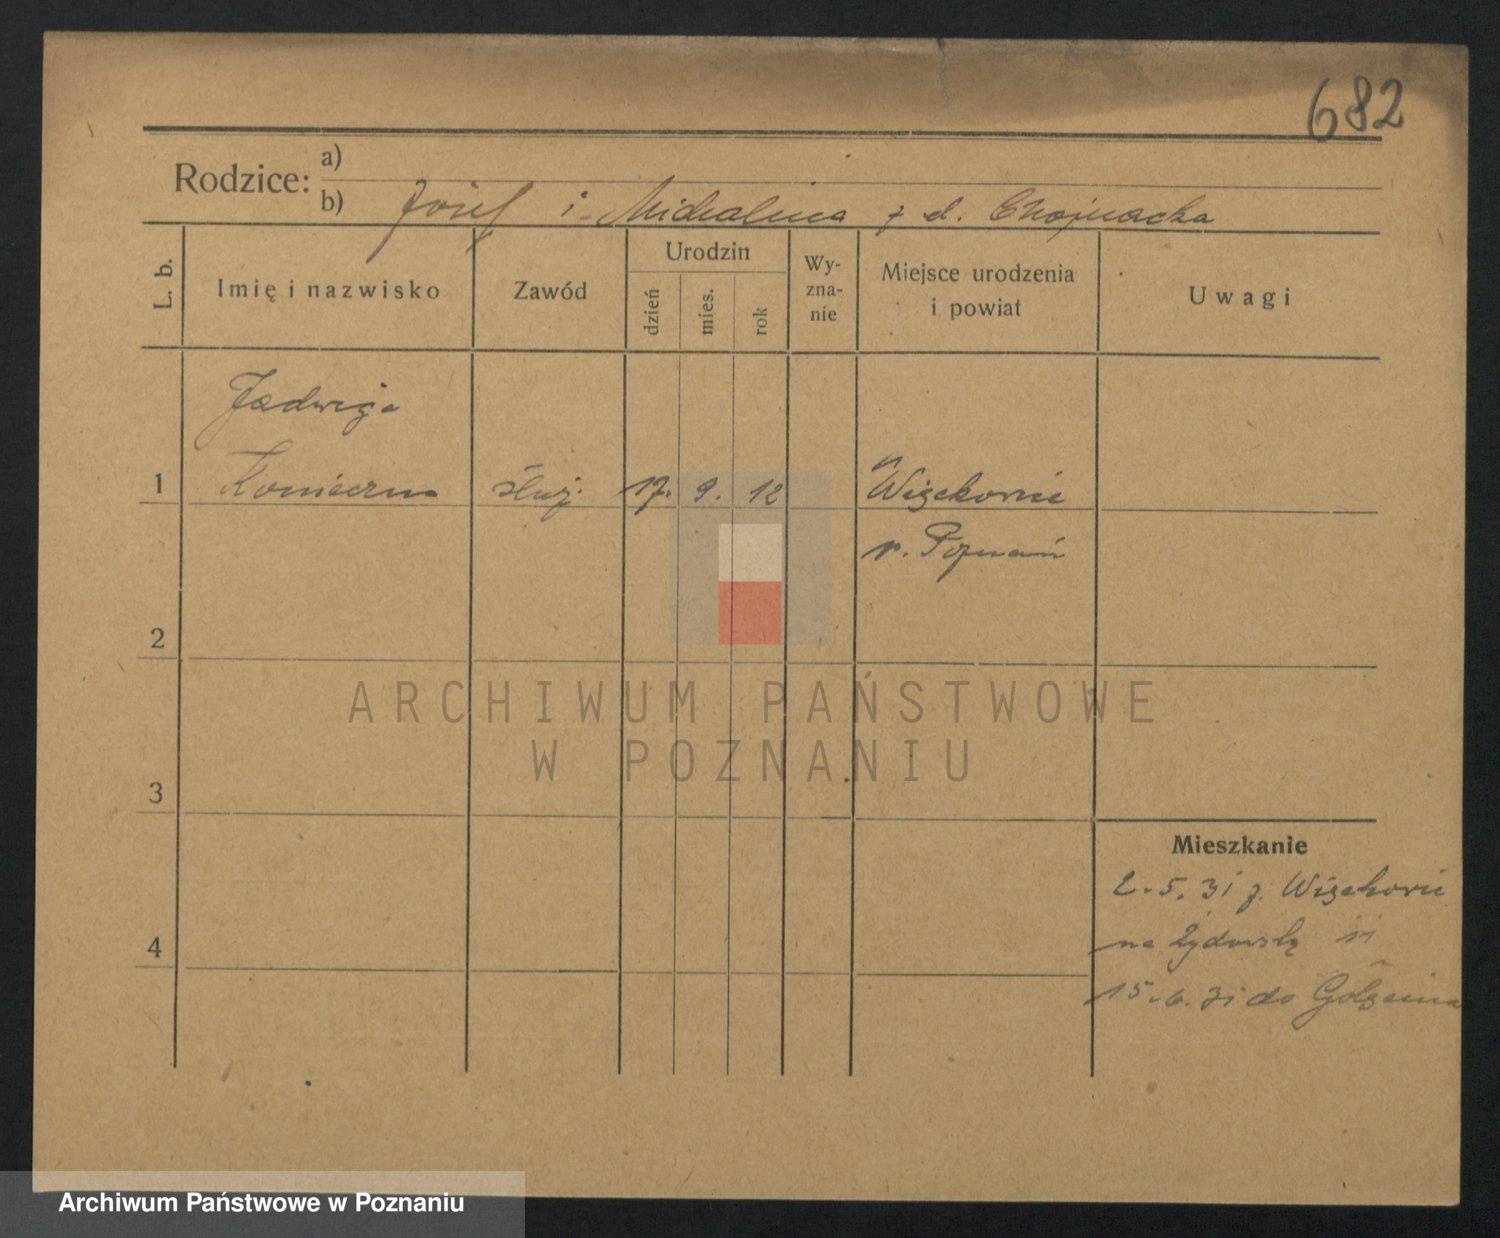 682
Rodzice: a)
b) Józef i Michalina z d. Chojnacka
L. b.
Imię i nazwisko
Zawód
Urodzin
dzień
mies.
rok
Wy-
zna-
nie
Miejsce urodzenia
i powiat
Uwagi
Jadwiga
1 Konieczna służ. 17. 9. 12 Więckowice
p. Poznań
2
3
4
Mieszkanie
2.5.31 z Więckowic
na Żydowską 11
15.6.31 do Golęcina
ARCHIWUM PAŃSTWOWE
W POZNANIU
Archiwum Państwowe w Poznaniu